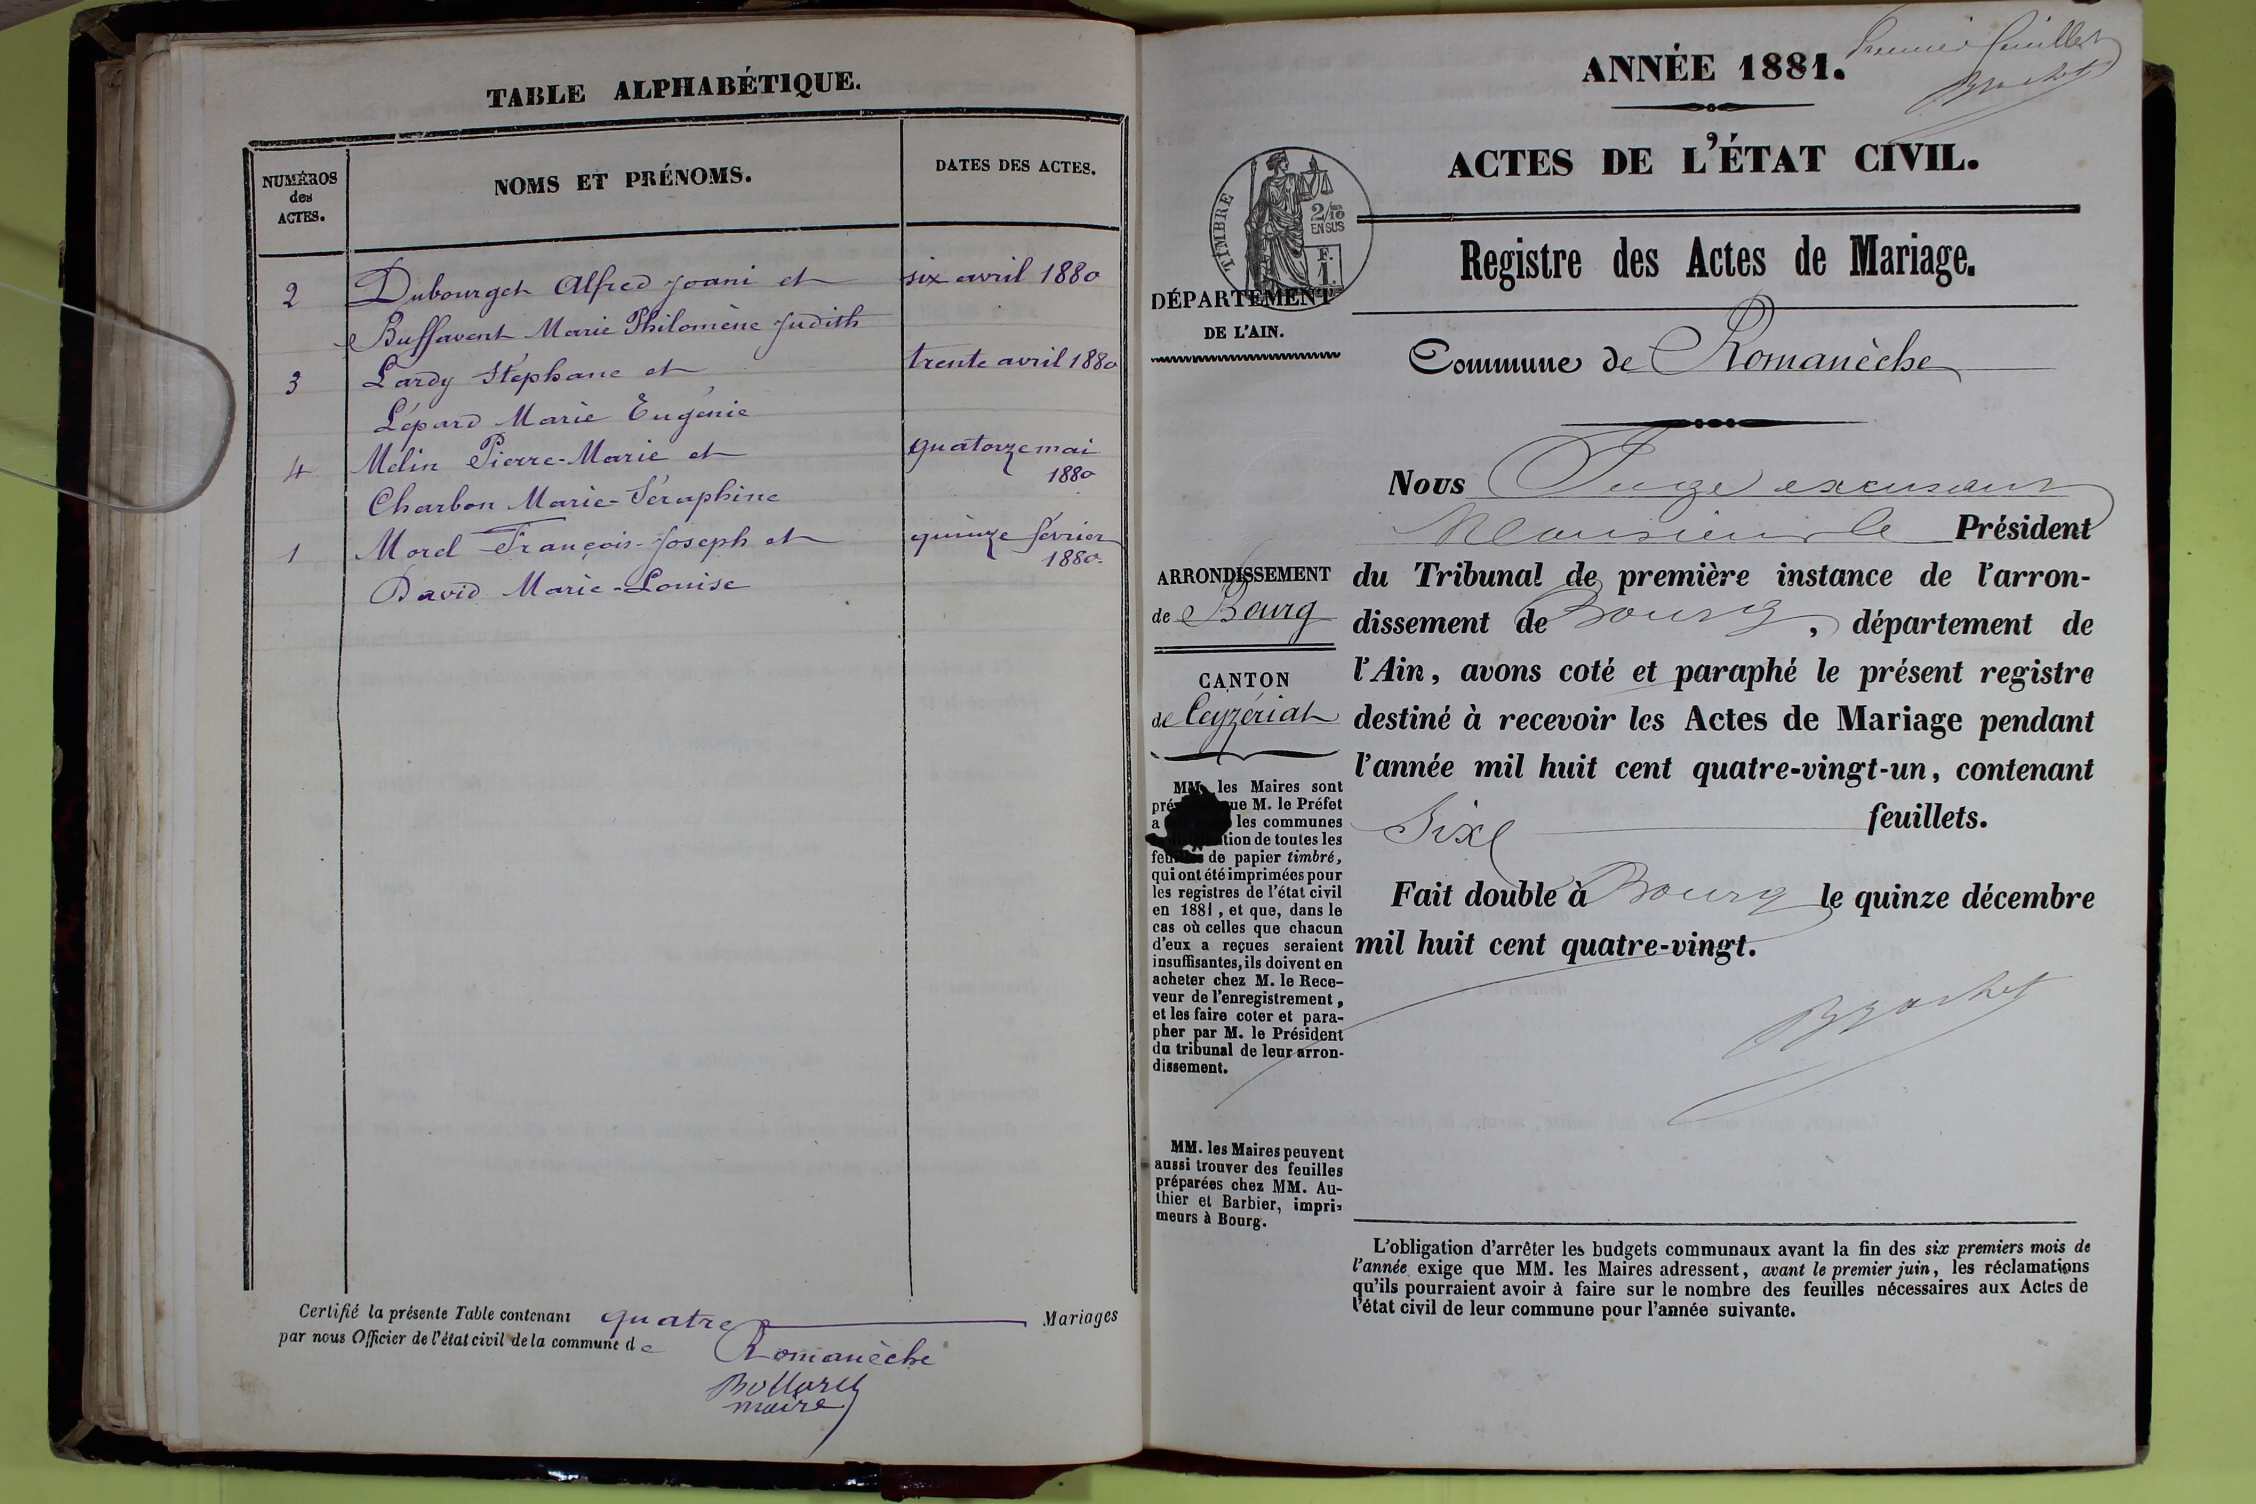 TABLE ALPHABÉTIQUE.
NUMÉROS
des
ACTES.
NOMS ET PRÉNOMS.
DATES DES ACTES.
2 Dubourget Alfred Joani et six avril 1880
Buffavent Marie Philomène Judith
3 Lardy Stéphane et trente avril 1880
Lépard Marie Eugénie
4 Melin Pierre-Marie et quatorze mai
1880
Charbon Marie-Séraphine
1 Morel François-Joseph et quinze février
1880.
David Marie-Louise
Certifié la présente Table contenant quatre Mariages
par nous Officier de l'état civil de la commune de Romanèche
maire
ANNÉE 1881.
Premier feuillet
Brochet
ACTES DE L'ÉTAT CIVIL.
TIMBRE
2/10
EN SUS
F.
1.
Registre des Actes de Mariage.
DÉPARTEMENT
DE L'AIN.
Commune de Romanèche
Nous Juge excusant
Monsieur le Président
du Tribunal de première instance de l'arron-
dissement de Bourg, département de
l'Ain, avons coté et paraphé le présent registre
destiné à recevoir les Actes de Mariage pendant
l'année mil huit cent quatre-vingt-un, contenant
Six feuillets.
Fait double à Bourg le quinze décembre
mil huit cent quatre-vingt.
Brochet
ARRONDISSEMENT
de Bourg
CANTON
de Ceyzériat
MM. les Maires sont
que M. le Préfet
a les communes
de toutes les
feuilles de papier timbré,
qui ont été imprimées pour
les registres de l'état civil
en 1881, et que, dans le
cas où celles que chacun
d'eux a reçues seraient
insuffisantes, ils doivent en
acheter chez M. le Rece-
veur de l'enregistrement,
et les faire coter et para-
pher par M. le Président
du tribunal de leur arron-
dissement.
MM. les Maires peuvent
aussi trouver des feuilles
préparées chez MM. Au-
thier et Barbier, impri-
meurs à Bourg.
L'obligation d'arrêter les budgets communaux avant la fin des six premiers mois de
l'année exige que MM. les Maires adressent, avant le premier juin, les réclamations
qu'ils pourraient avoir à faire sur le nombre des feuilles nécessaires aux Actes de
l'état civil de leur commune pour l'année suivante.